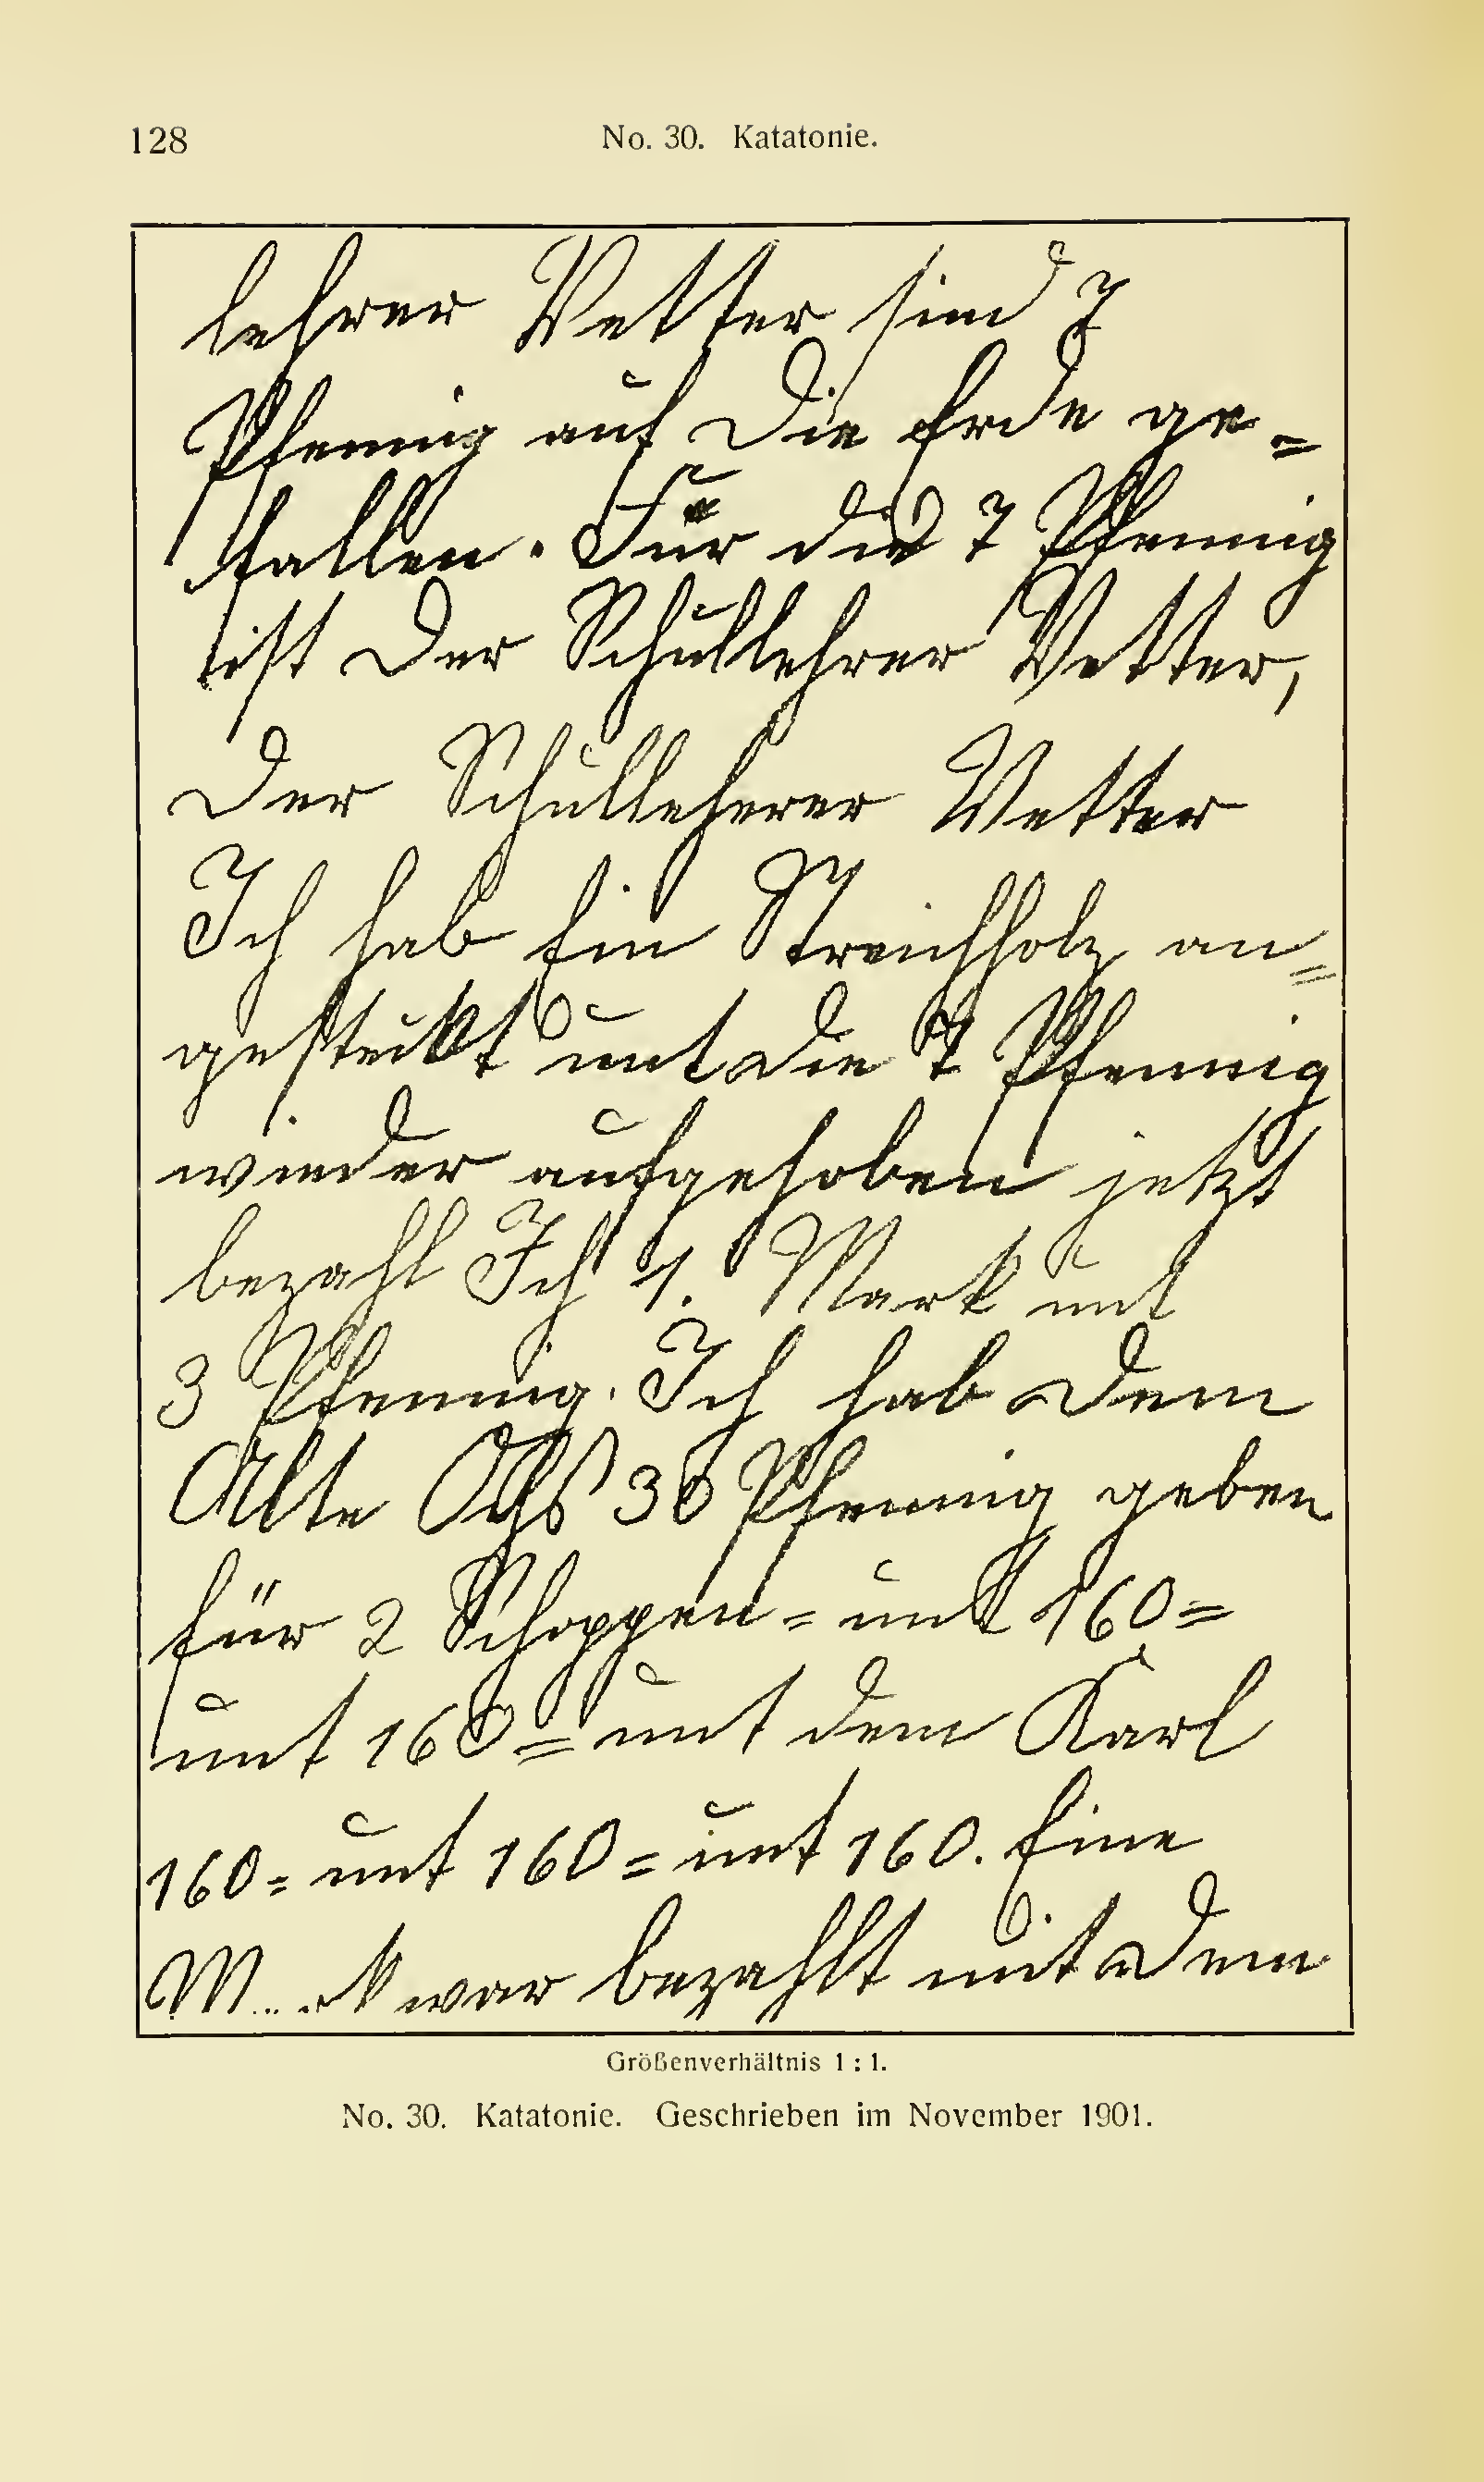 128
No. 30. Katatonie.
lehrer Vetter sind 7
Pfennig auf die Erde ge=
fallen. Für die 7 Pfennig
ist der Schullehrer Vetter,
der Schulleherer Vetter
Ich hab Ein Streichholz an=
gesteckt unt die 7 Pfennig
wieder aufgehoben jetzt
bezahl Ich 1. Mark unt
3 Pfennig. Ich hab dem
Alte Ochs 30 Pfennig geben
für 2 Schoppen = unt 160 =
unt 160 = unt dem Karl
160 = unt 160 = unt 160. Eine
M....k war bezahlt mit dem
Größenverhältnis 1 : 1.
No. 30. Katatonie. Geschrieben im November 1901.